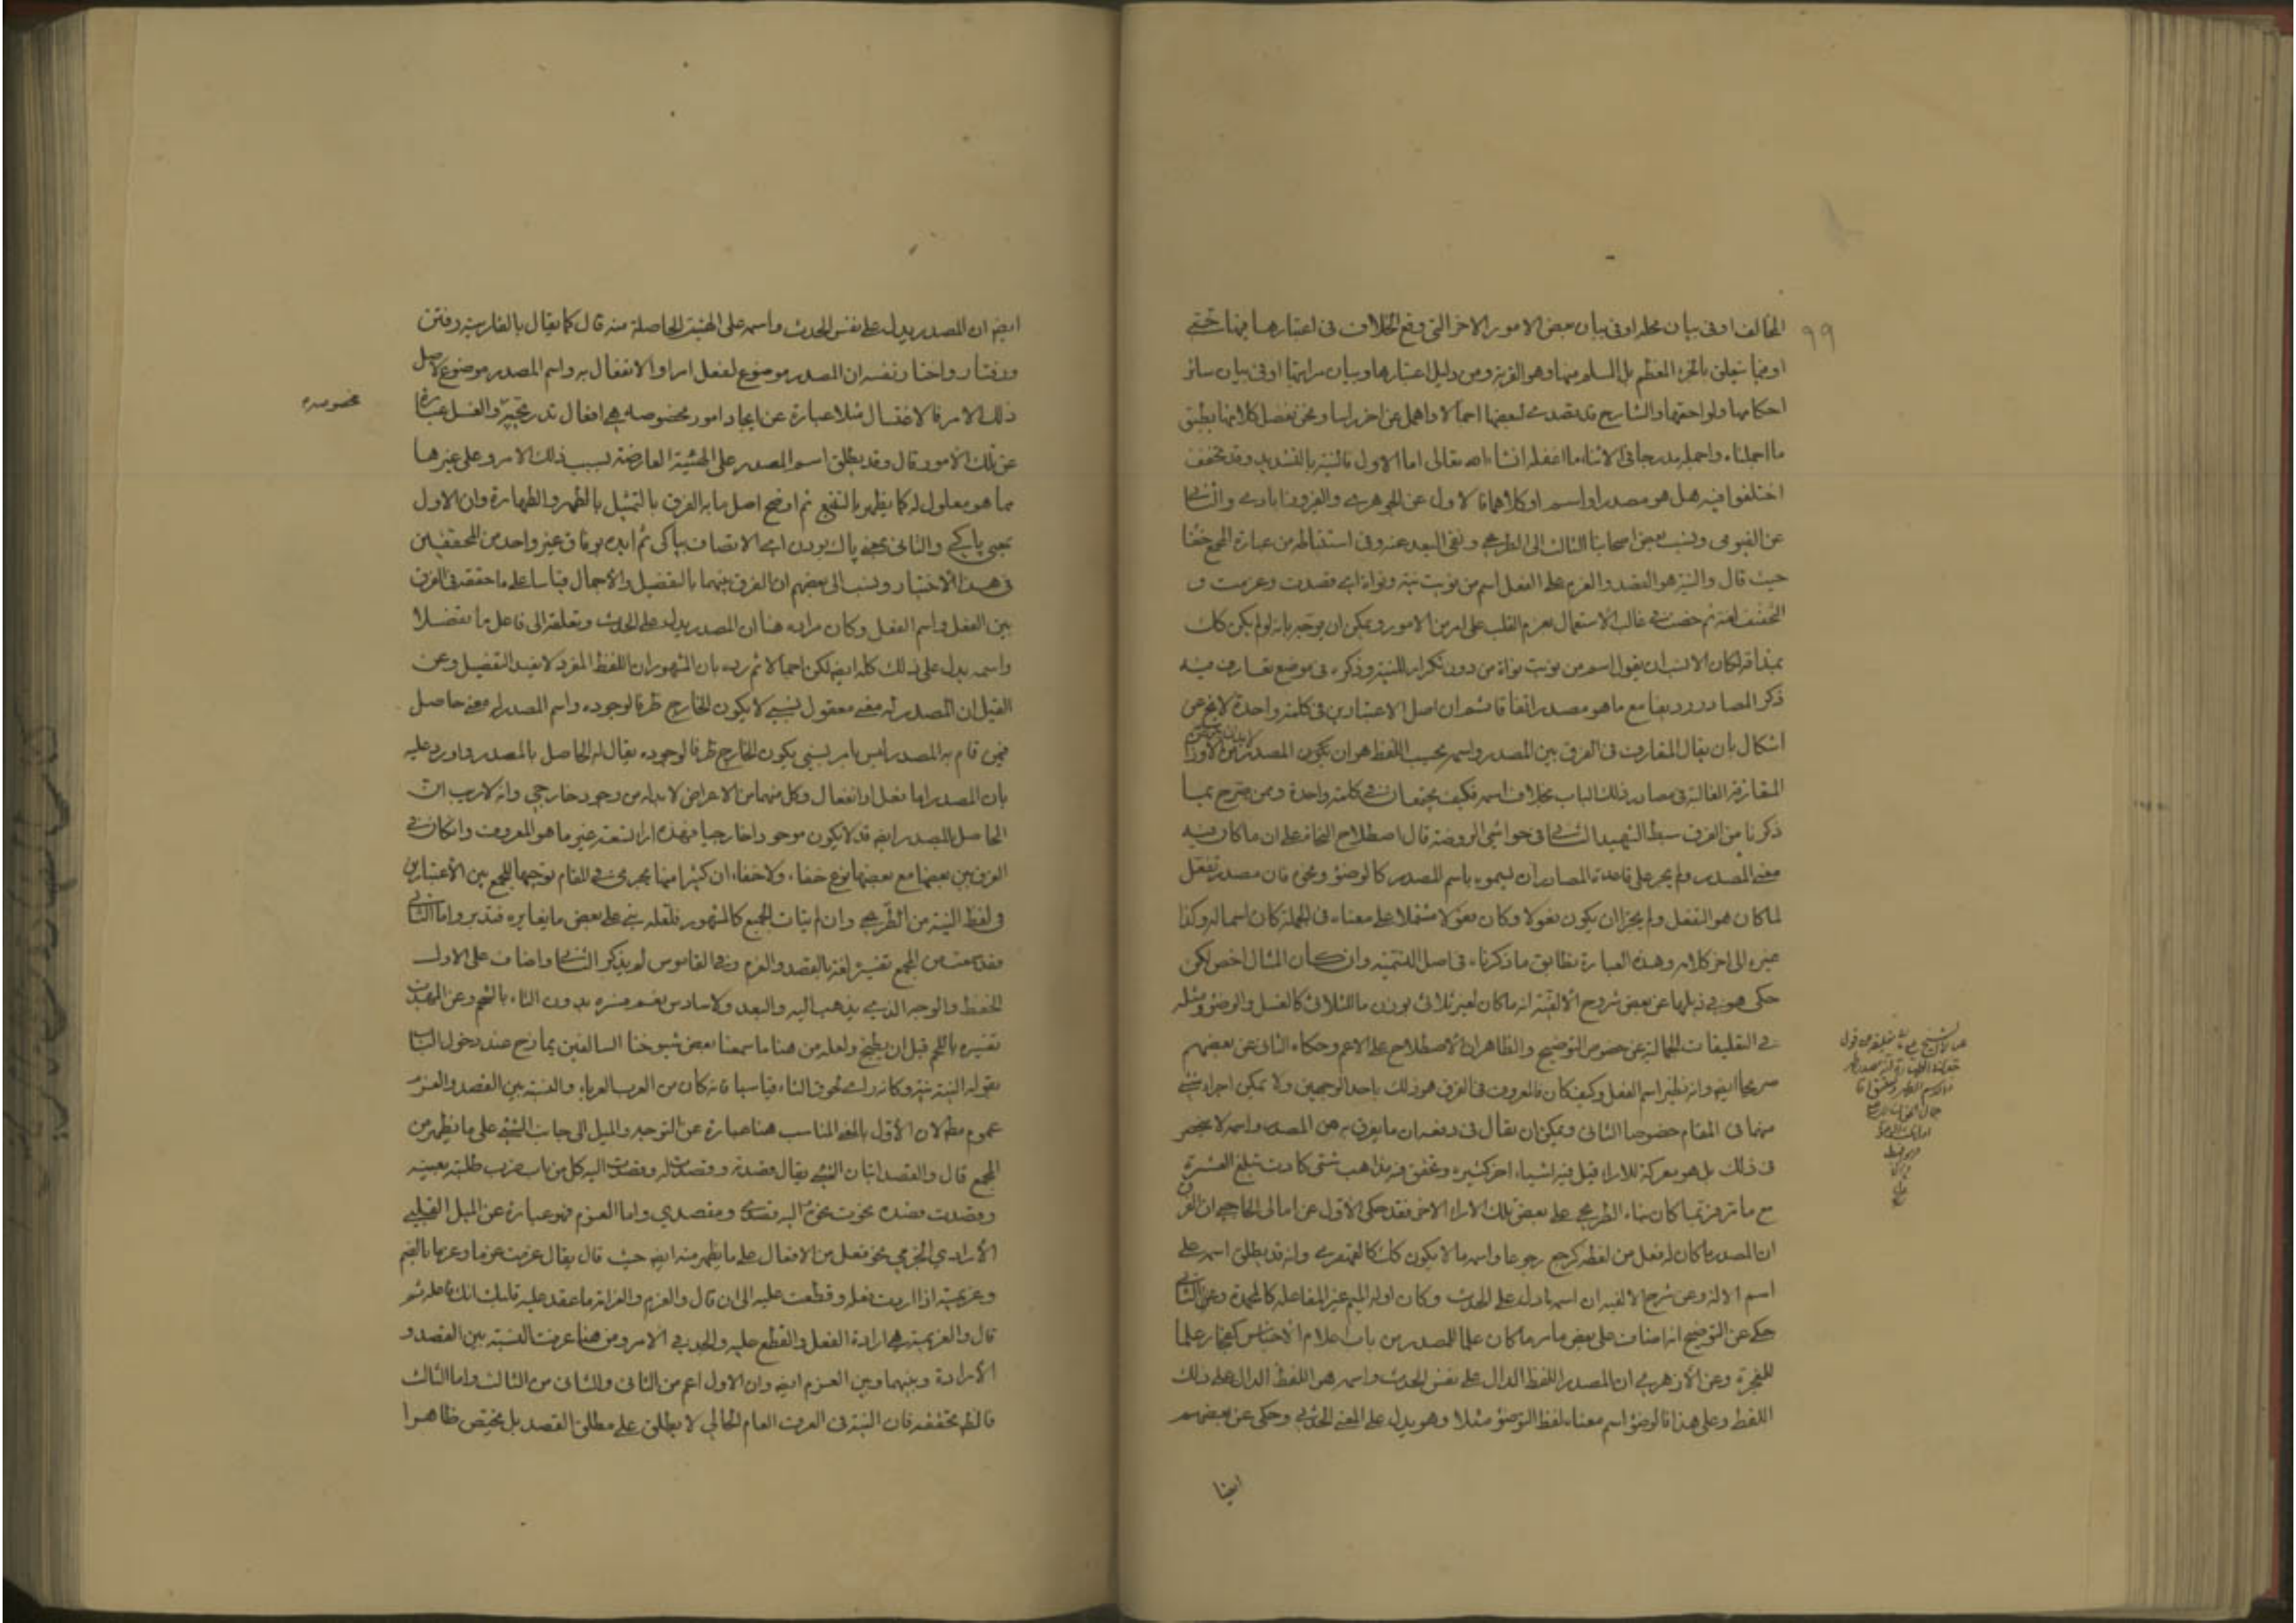 المخالف او فى بيان محله او فى بيان بعض الامور الاخر التى وقع الخلاف فى اعتبارها فيها حتى
٩٩
او فيما يتعلق بالجزء المعظم بل المسلم منها وهو القربة ومن دليل اعتبارها وبيان مراتبها او فى بيان سائر
احكامها ولواحقها والشارح قد تصدى لبعضها اجمالا واهمل عن اخر راسا ونحن نفصل كلا منها بطبق
ما اجملناه واجمله مدرجا فى الاثناء ما اغفله انشاء الله تعالى اما الاول فالنية بالتشديد وقد تخفف
اختلفوا فيه هل هو مصدر او اسم او كلاهما فالاول عن الجوهرى والفيروزابادى والثانى
عن الفيومى ونسب بعض اصحابنا الثالث الى الطريحى ونفى البعد عنه وفى استنباطه من عبارة المجمع خفا
حيث قال والنية هو القصد والعزم على الفعل اسم من نويت نية ونواة اى قصدت وعزمت و
التخفيف لغة ثم خصت فى غالب الاستعمال بعزم القلب على امر من الامور ويمكن ان يوجه بانه لو لم يكن كك
بمذاقه لكان الانسب ان يقول اسم من نويت نواة من دون تكرار للنية وذكره فى موضع تعارف فيه
ذكر المصادر رديفا مع ما هو مصدر اتفاقا مشعر ان اصل الاعتبارين فى كلمة واحدة لا يخ عن
اشكال بان يقال المتعارف فى الفرق بين المصدر واسمه بحسب اللفظ هو ان يكون المصدر من الاوزان
المتعارفة الغالبة فى مصادر ذلك الباب بخلاف اسمه فكيف يجتمعان فى كلمة واحدة وممن صرح بما
ذكرنا من الفرق سبط الشهيد الثانى فى حواشى الروضة قال اصطلاح النحاة على ان ما كان فيه
معنى المصدر ولم يجر على قاعدة المصادر ان يسموه باسم المصدر كالوضوء ونحوه فان مصدر تفعل
لما كان هو التفعل ولم يجز ان يكون فعولا وكان فعولا مشتملا على معناه فى الجملة كان اسما له وكذا
غيره الى اخر كلامه وهذه العبارة تطابق ما ذكرناه فى اصل التسمية وان كان المثال اخص لكن
حكى هو فى ذيلها عن بعض شروح الالفية انه ما كان لغير ثلاثى بوزن ما للثلاثى كالغسل والوضوء ومثله
فى التعليقات الجمالية عن خصوص التوضيح والظاهر ان الاصطلاح على الاعم وحكاه الثانى عن بعضهم
صريحا ايضه وانه نظير اسم الفعل وكيف كان فالمعروف فى الفرق هو ذلك باحد الوجهين ولا يمكن اجراء شىء
منهما فى المقام خصوصا الثانى ويمكن ان يقال فى دفعه ان ما يفرق به بين المصدر واسمه لا ينحصر
فى ذلك بل هو معركة للاراء قيل فيه اشياء اخر كثيرة وتحقق فيه مذاهب شتى كادت تبلغ العشرة
ان المصدر ما كان له فعل من لفظه كرجع رجوعا واسمه ما لا يكون كك كالقهقرى وانه قد يطلق اسمه على
اسم الالة وعن شرح الالفية ان اسمه ما دل على الحدث وكان اوله الميم غير المفاعلة كالمحمدة وعن الثانى
حكى عن التوضيح انه اضاف على بعض ما مر ما كان علما للمصدر من باب اعلام الاجناس كفجار علما
للفجرة وعن الازهرى ان المصدر اللفظ الدال على نفس الحدث واسمه هو اللفظ الدال على ذلك
اللفظ وعلى هذا فالوضوء اسم معناه لفظ التوضؤ مثلا وهو يدل على المعنى الحدثى وحكى عن بعضهم
ايضا
ايضه ان المصدر يدل على نفس الحدث واسمه على الهيئة الحاصلة منه قال كما يقال بالفارسية رفتن
ورفتار واختار نفسه ان المصدر موضوع لفعل امر او الانفعال به واسم المصدر موضوع لاصل
ذلك الامر فالاغتسال مثلا عبارة عن ايجاد امور مخصوصة هى افعال تدريجية والغسل عبارة
مخصوصه
عن تلك الامور وقال وقد يطلق اسم المصدر على الهيئة العارضة بسبب ذلك الامر وعلى غيرها
مما هو معلول له كما يظهر بالتتبع ثم اوضح اصل ما به الفرق بالتمثيل بالطهر والطهارة وان الاول
بمعنى پاكى والثانى بمعنى پاك بودن اى الاتصاف بپاكى ثم ايده بوفاق غير واحد من المحققين
فى هذا الاختيار ونسب الى بعضهم ان الفرق بينهما بالتفصيل والاجمال قياسا على ما حققه فى الفرق
بين الفعل واسم الفعل وكان مراده هنا ان المصدر يدل على الحدث وتعلقه الى فاعل ما تفضلا
واسمه يدل على ذلك كله ايضه لكن اجمالا ثم رده بان المشهور ان اللفظ المفرد لا يفيد التفصيل وعن
القيل ان المصدر له معنى معقول نسبى لا يكون الخارج ظرفا لوجوده واسم المصدر له معنى حاصل
فيمن قام به المصدر ليس بامر نسبى يكون الخارج ظرفا لوجوده يقال له الحاصل بالمصدر واورد عليه
بان المصدر اما فعل او انفعال وكل منهما من الاعراض لا بد له من وجود خارجى وانه لا ريب ان
الحاصل بالمصدر ايضه قد لا يكون موجودا خارجيا فهذه اراء تسعة غير ما هو المعروف وان كان فى
الفرق بين بعضها مع بعضها نوع خفاء ولا خفاء ان كثيرا منها يجرى فى المقام توجيها للجمع بين الاعتبارين
فى لفظ النية من الطريحى وان لم يتات الجمع كالمشهور فلعله بنى على بعض ما يغايره فتدبر واما الثانى
فقد سمعت من المجمع تفسيره لغة بالقصد والعزم وفى القاموس لم يذكر الثانى واضاف على الاول
الحفظ والوجه الذى يذهب اليه والبعد
تفسيره باللحم قبل ان يطبخ ولعله من هنا ما سمعنا بعض شيوخنا السالفين يمازح عند دخول
عموم مطلق لان الاول بالمعنى المناسب هنا عبارة عن التوجه والميل الى جانب الشىء على ما يظهر من
المجمع قال والقصد اتيان الشىء يقال قصدته وقصدت له وقصدت اليه كل من باب ضرب طلبته بعينه
وقصدت قصده نحوت نحوه اليه قصدى ومقصدى واما العزم فهو عبارة عن الميل القلبى
الارادى الجزمى نحو فعل من الافعال على ما يظهر منه ايضه حيث قال يقال عزمت عزما وعزما بالضم
وعزيمة اذا اردت فعله وقطعت عليه الى ان قال والعزم والعزمة ما عقد عليه قلبك انك فاعله ثم
قال والعزيمة هى ارادة الفعل والقطع عليه والجد فى الامر ومن هنا عرفت النسبة بين القصد و
الارادة وبينهما وبين العزم ايضه وان الاول اعم من الثانى والثانى من الثالث واما الثالث
فالظه تحققه فان النية فى العرف العام الحالى لا يطلق على مطلق القصد بل يختص ظاهرا